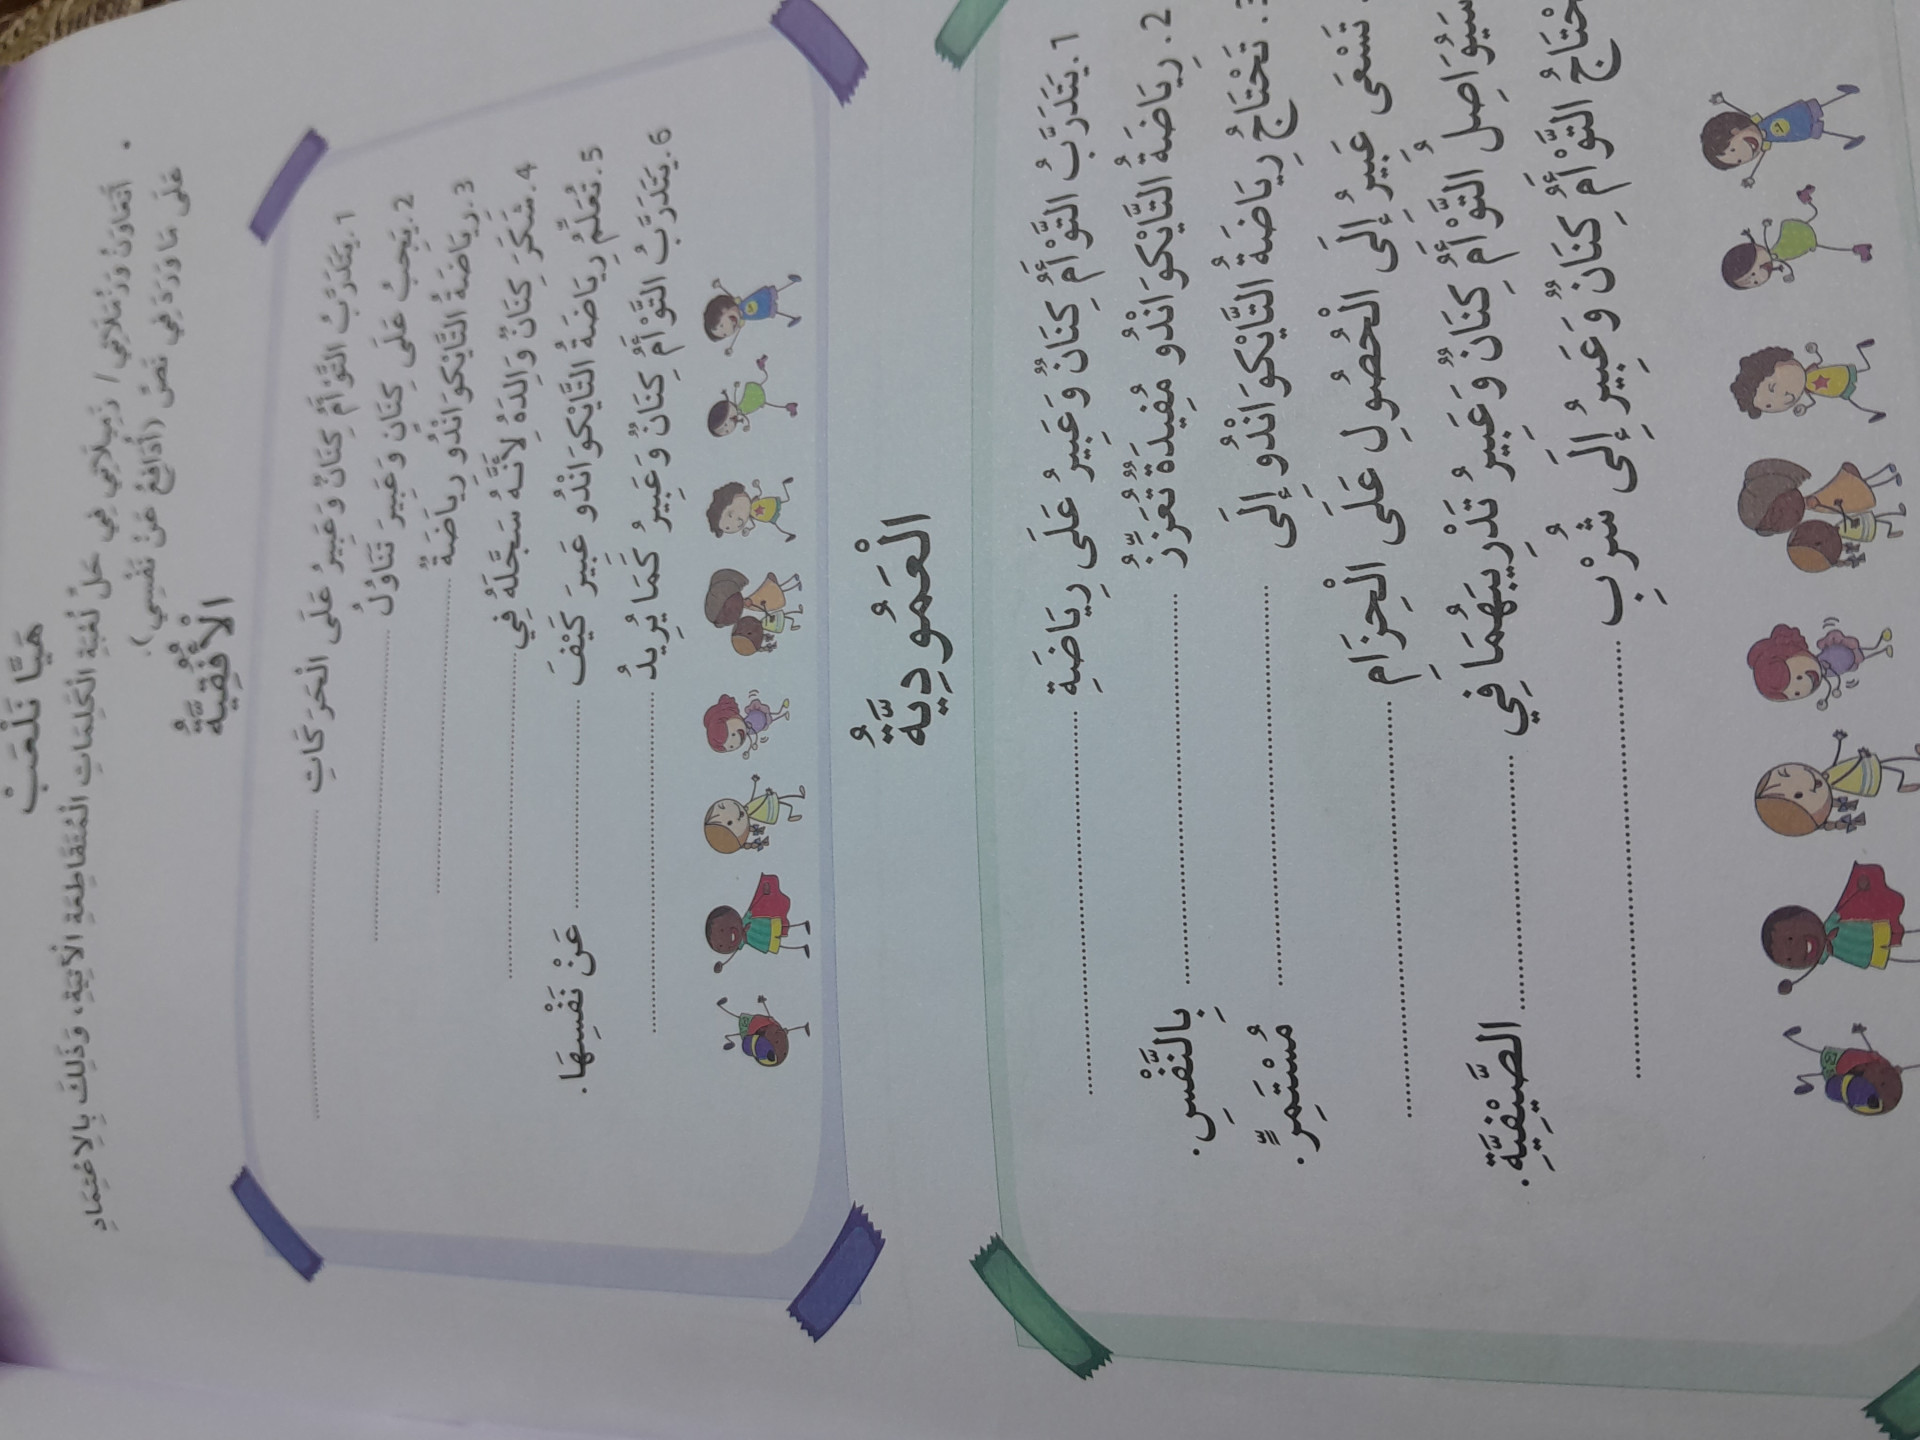 هَيَّا نَلْعَبْ
• أَتَعَاوَنُ وَزُمَلَائِي / زَمِيلَاتِي فِي حَلِّ لُعْبَةِ الْكَلِمَاتِ الْمُتَقَاطِعَةِ الْآتِيَةِ، وَذَلِكَ بِالِاعْتِمَادِ
عَلَى مَا وَرَدَ فِي نَصِّ (أُدَافِعُ عَنْ نَفْسِي).
الْأُفُقِيَّةُ
1. يَتَدَرَّبُ التَّوْأَمُ كِنَانُ وَعَبِيرُ عَلَى الْحَرَكَاتِ ........................
2. يَجِبُ عَلَى كِنَانَ وَعَبِيرَ تَنَاوُلُ ........................
3. رِيَاضَةُ التَّايْكوَانْدُو رِيَاضَةٌ ........................
4. شَكَرَ كِنَانُ وَالِدَهُ لِأَنَّهُ سَجَّلَهُ فِي ........................
5. تُعَلِّمُ رِيَاضَةُ التَّايْكوَانْدُو عَبِيرَ كَيْفَ ........................ عَنْ نَفْسِهَا.
6. يَتَدَرَّبُ التَّوْأَمُ كِنَانُ وَعَبِيرُ كَمَا يُرِيدُ ........................
الْعَمُودِيَّةُ
1. يَتَدَرَّبُ التَّوْأَمُ كِنَانُ وَعَبِيرُ عَلَى رِيَاضَةِ ........................
2. رِيَاضَةُ التَّايْكوَانْدُو مُفِيدَةٌ تُعَزِّزُ ........................ بِالنَّفْسِ.
3. تَحْتَاجُ رِيَاضَةُ التَّايْكوَانْدُو إِلَى ........................ مُسْتَمِرٍّ.
تَسْعَى عَبِيرُ إِلَى الْحُصُولِ عَلَى الْحِزَامِ ........................
التَّوْأَمُ كِنَانُ وَعَبِيرُ تَدْرِيبَهُمَا فِي ........................ الصَّيْفِيَّةِ.
التَّوْأَمُ كِنَانُ وَعَبِيرُ إِلَى شُرْبِ ........................